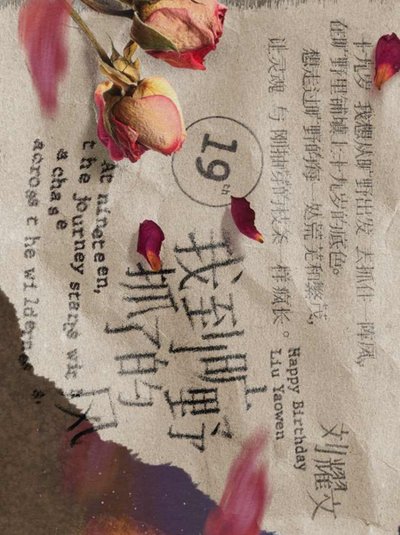 十九岁 我想从旷野出发 去抓住一阵风,
在旷野里铺填上十九岁的底色。
想走过旷野的海 荒芜和繁茂,
让灵魂 与 刚抽芽的枝条 一样疯长。
刘耀文
Happy Birthday
Liu Yaowen
19th
我抓到了旷野的风
At nineteen,
the journey stars
a chase
across the